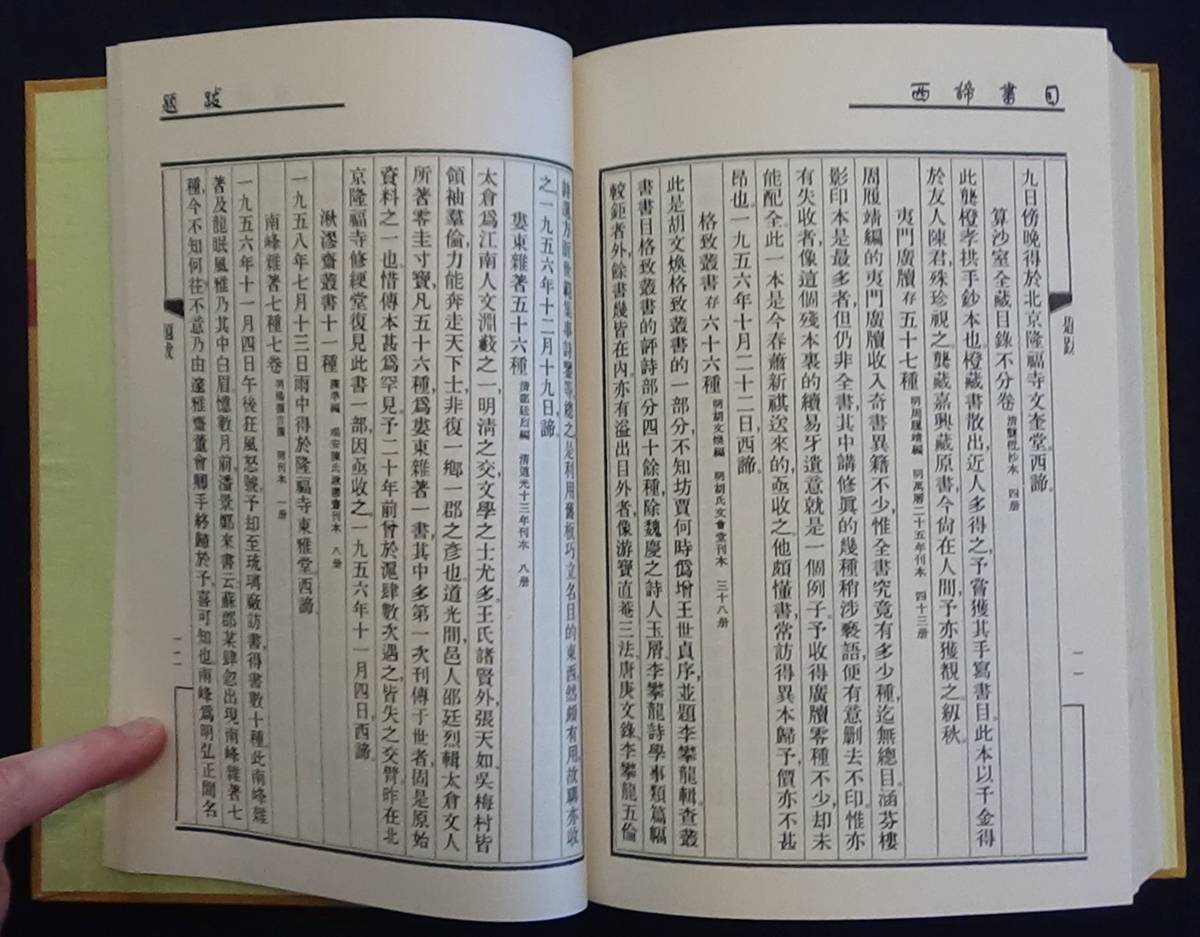 西諦書目
題跋
一一
九日傍晚得於北京隆福寺文奎堂。西諦。
算沙室全藏目錄不分卷 清龔橙抄本 四册
此龔橙孝拱手鈔本也。橙藏書散出,近人多得之。予嘗獲其手寫書目。此本以千金得
於友人陳君,殊珍視之。龔藏嘉興藏原書,今尙在人間,予亦獲覩之。紉秋
夷門廣牘存五十七種 明周履靖編 明萬曆二十五年刊本 四十三册
周履靖編的夷門廣牘收入奇書異籍不少,惟全書究竟有多少種,迄無總目。涵芬樓
影印本是最多者,但仍非全書,其中講修眞的幾種稍涉褻語,便有意删去不印。惟亦
有失收者,像這個殘本裏的續易牙遺意就是一個例子。予收得廣牘零種不少,却未
能配全。此一本是今春蕭新祺送來的,亟收之。他頗懂書,常訪得異本歸予,價亦不甚
昂也。一九五六年十月二十二日,西諦。
格致叢書存六十六種 明胡文煥編 明胡氏文會堂刊本 三十八册
此是胡文煥格致叢書的一部分,不知坊賈何時僞增王世貞序,並題李攀龍輯。查叢
書書目格致叢書的評詩部分四十餘種,除魏慶之詩人玉屑、李攀龍詩學事類篇幅
較鉅者外,餘書幾皆在內,亦有溢出目外者,像游寶直菴三法、唐庚文錄、李攀龍五倫
題跋
題跋
一二
之。一九五六年十二月十九日,諦。
婁東雜著五十六種 清邵廷烈編 清道光十三年刊本 八册
太倉爲江南人文淵藪之一,明清之交,文學之士尤多。王氏諸賢外,張天如、吳梅村皆
領袖羣倫,力能奔走天下士,非復一鄉一郡之彥也。道光間,邑人邵廷烈輯太倉文人
所著零圭寸寶,凡五十六種,爲婁東雜著一書,其中多第一次刊傳于世者,固是原始
資料之一也。惜傳本甚爲罕見。予二十年前曾於滬肆數次遇之,皆失之交臂。昨在北
京隆福寺修綆堂復見此書一部,因亟收之。一九五六年十一月四日,西諦。
湫漻齋叢書十一種 陳準編 瑞安陳氏湫漻齋刊本 八册
一九五八年七月十三日雨中得於隆福寺東雅堂。西諦。
南峰雜著七種七卷 明楊循吉撰 明刊本 一册
一九五六年十一月四日午後,狂風怒號,予却至琉璃廠訪書,得書數十種,此南峰雜
著及龍眠風雅乃其中白眉。憶數月前,潘景鄭來書云,蘇郡某肆忽出現南峰雜著七
種,今不知何往。不意乃由邃雅齋董會卿手終歸於予,喜可知也。南峰爲明弘正聞名